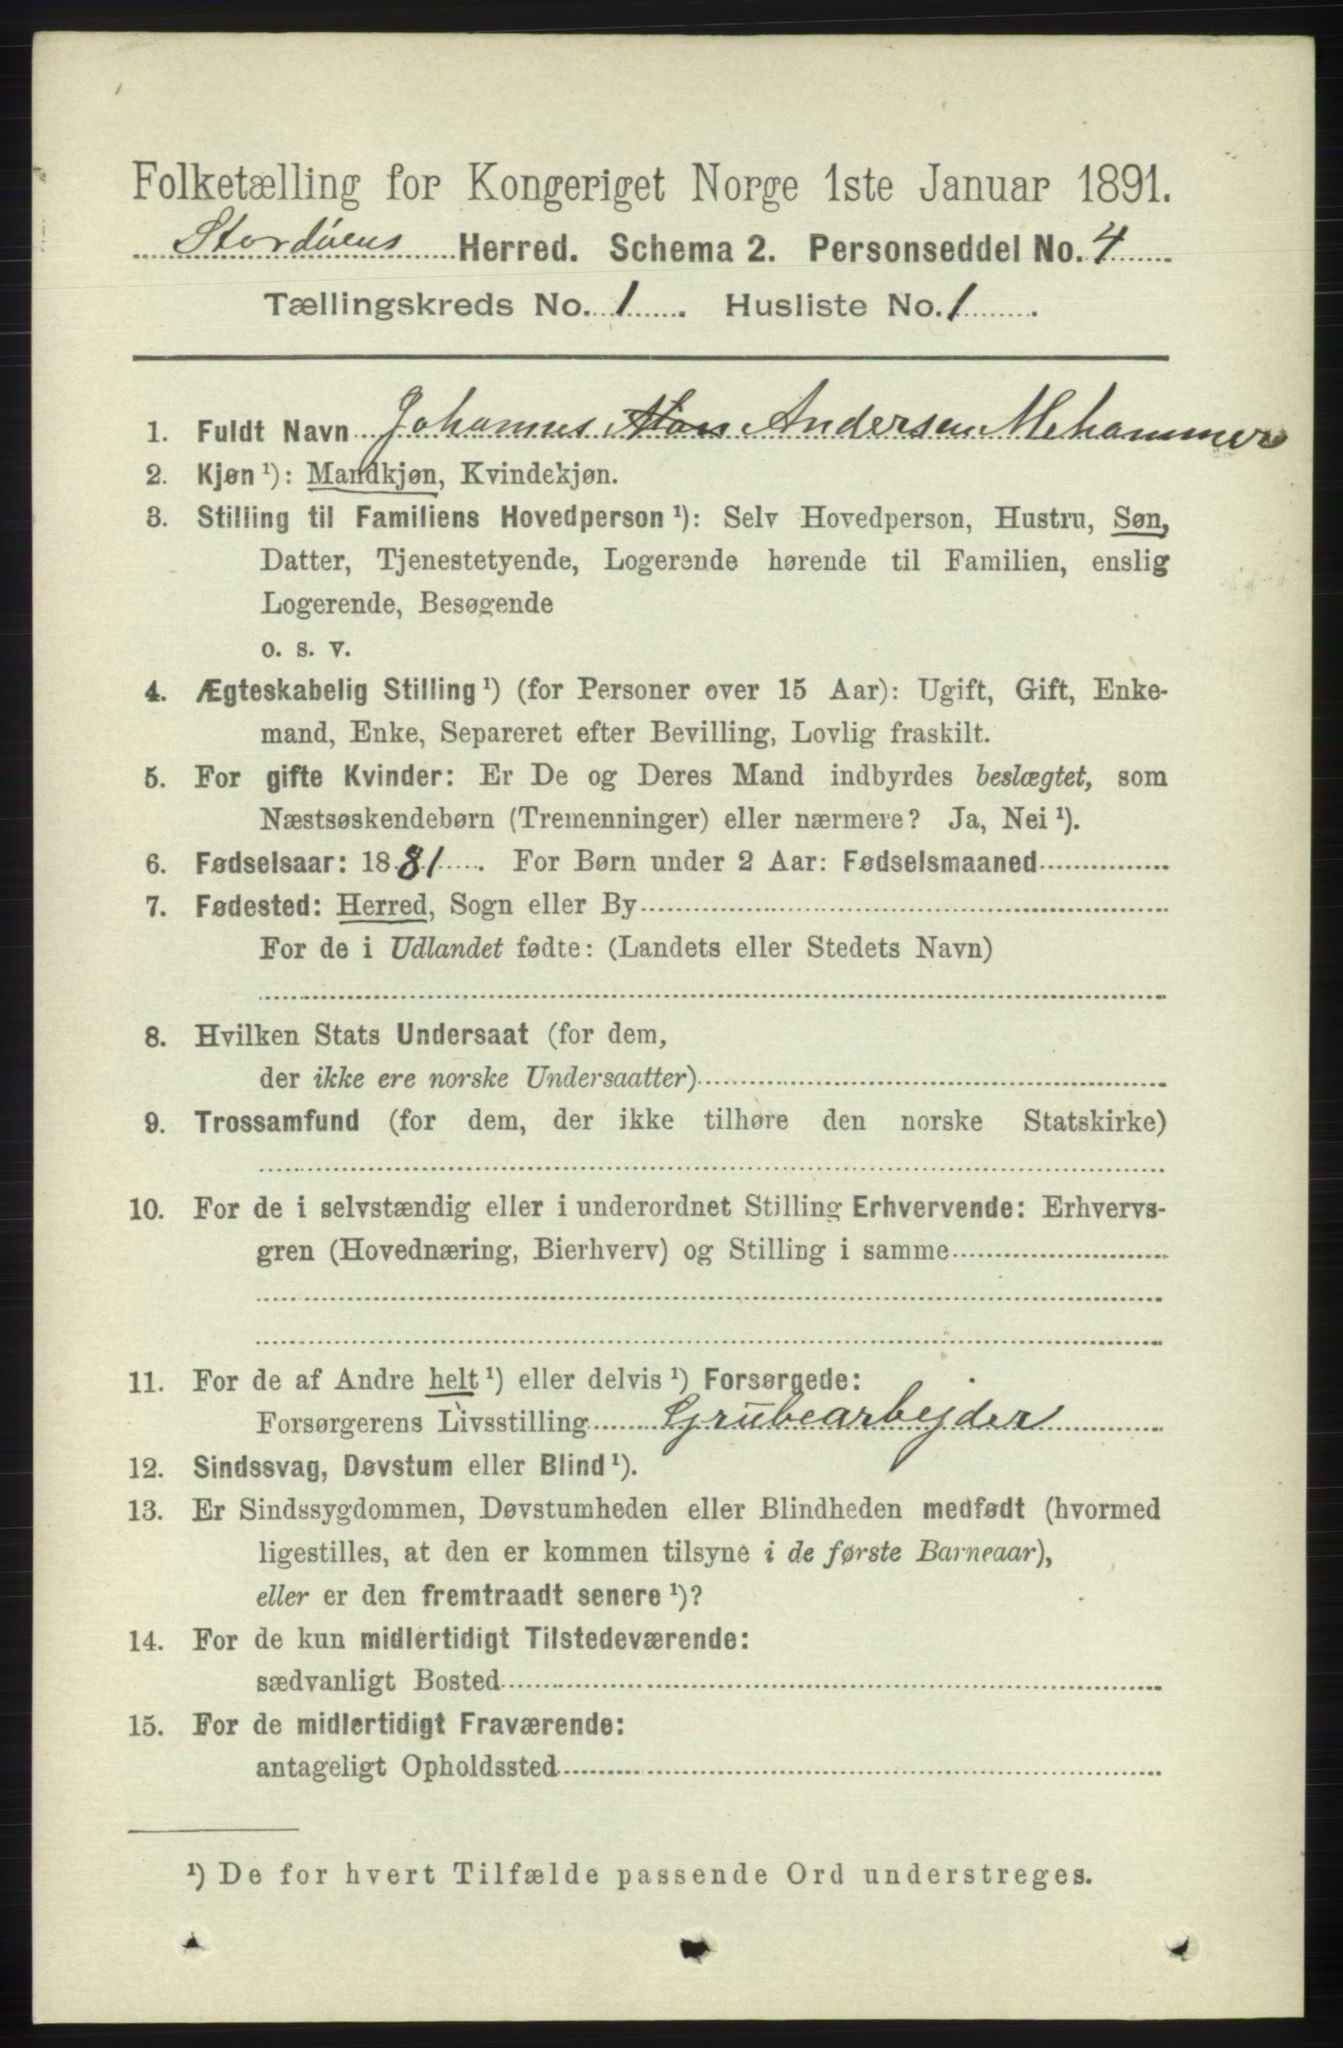 Folketælling for Kongeriget Norge 1ste Januar 1891.
Stordøens Herred. Schema 2. Personseddel No. 4
Tællingskreds No. 1. Husliste No. 1.
1. Fuldt Navn Johannes Andersen Mehammer
2. Kjøn ¹): Mandkjøn, Kvindekjøn.
3. Stilling til Familiens Hovedperson ¹): Selv Hovedperson, Hustru, Søn,
Datter, Tjenestetyende, Logerende hørende til Familien, enslig
Logerende, Besøgende
o. s. v.
4. Ægteskabelig Stilling ¹) (for Personer over 15 Aar): Ugift, Gift, Enke-
mand, Enke, Separeret efter Bevilling, Lovlig fraskilt.
5. For gifte Kvinder: Er De og Deres Mand indbyrdes beslægtet, som
Næstsøskendebørn (Tremenninger) eller nærmere? Ja, Nei ¹).
6. Fødselsaar: 1881. For Børn under 2 Aar: Fødselsmaaned
7. Fødested: Herred, Sogn eller By
For de i Udlandet fødte: (Landets eller Stedets Navn)
8. Hvilken Stats Undersaat (for dem,
der ikke ere norske Undersaatter)
9. Trossamfund (for dem, der ikke tilhøre den norske Statskirke)
10. For de i selvstændig eller i underordnet Stilling Erhvervende: Erhvervs-
gren (Hovednæring, Bierhverv) og Stilling i samme
11. For de af Andre helt ¹) eller delvis ¹) Forsørgede:
Forsørgerens Livsstilling Grubearbejder
12. Sindssvag, Døvstum eller Blind ¹).
13. Er Sindssygdommen, Døvstumheden eller Blindheden medfødt (hvormed
ligestilles, at den er kommen tilsyne i de første Barneaar),
eller er den fremtraadt senere ¹)?
14. For de kun midlertidigt Tilstedeværende:
sædvanligt Bosted
15. For de midlertidigt Fraværende:
antageligt Opholdssted
¹) De for hvert Tilfælde passende Ord understreges.